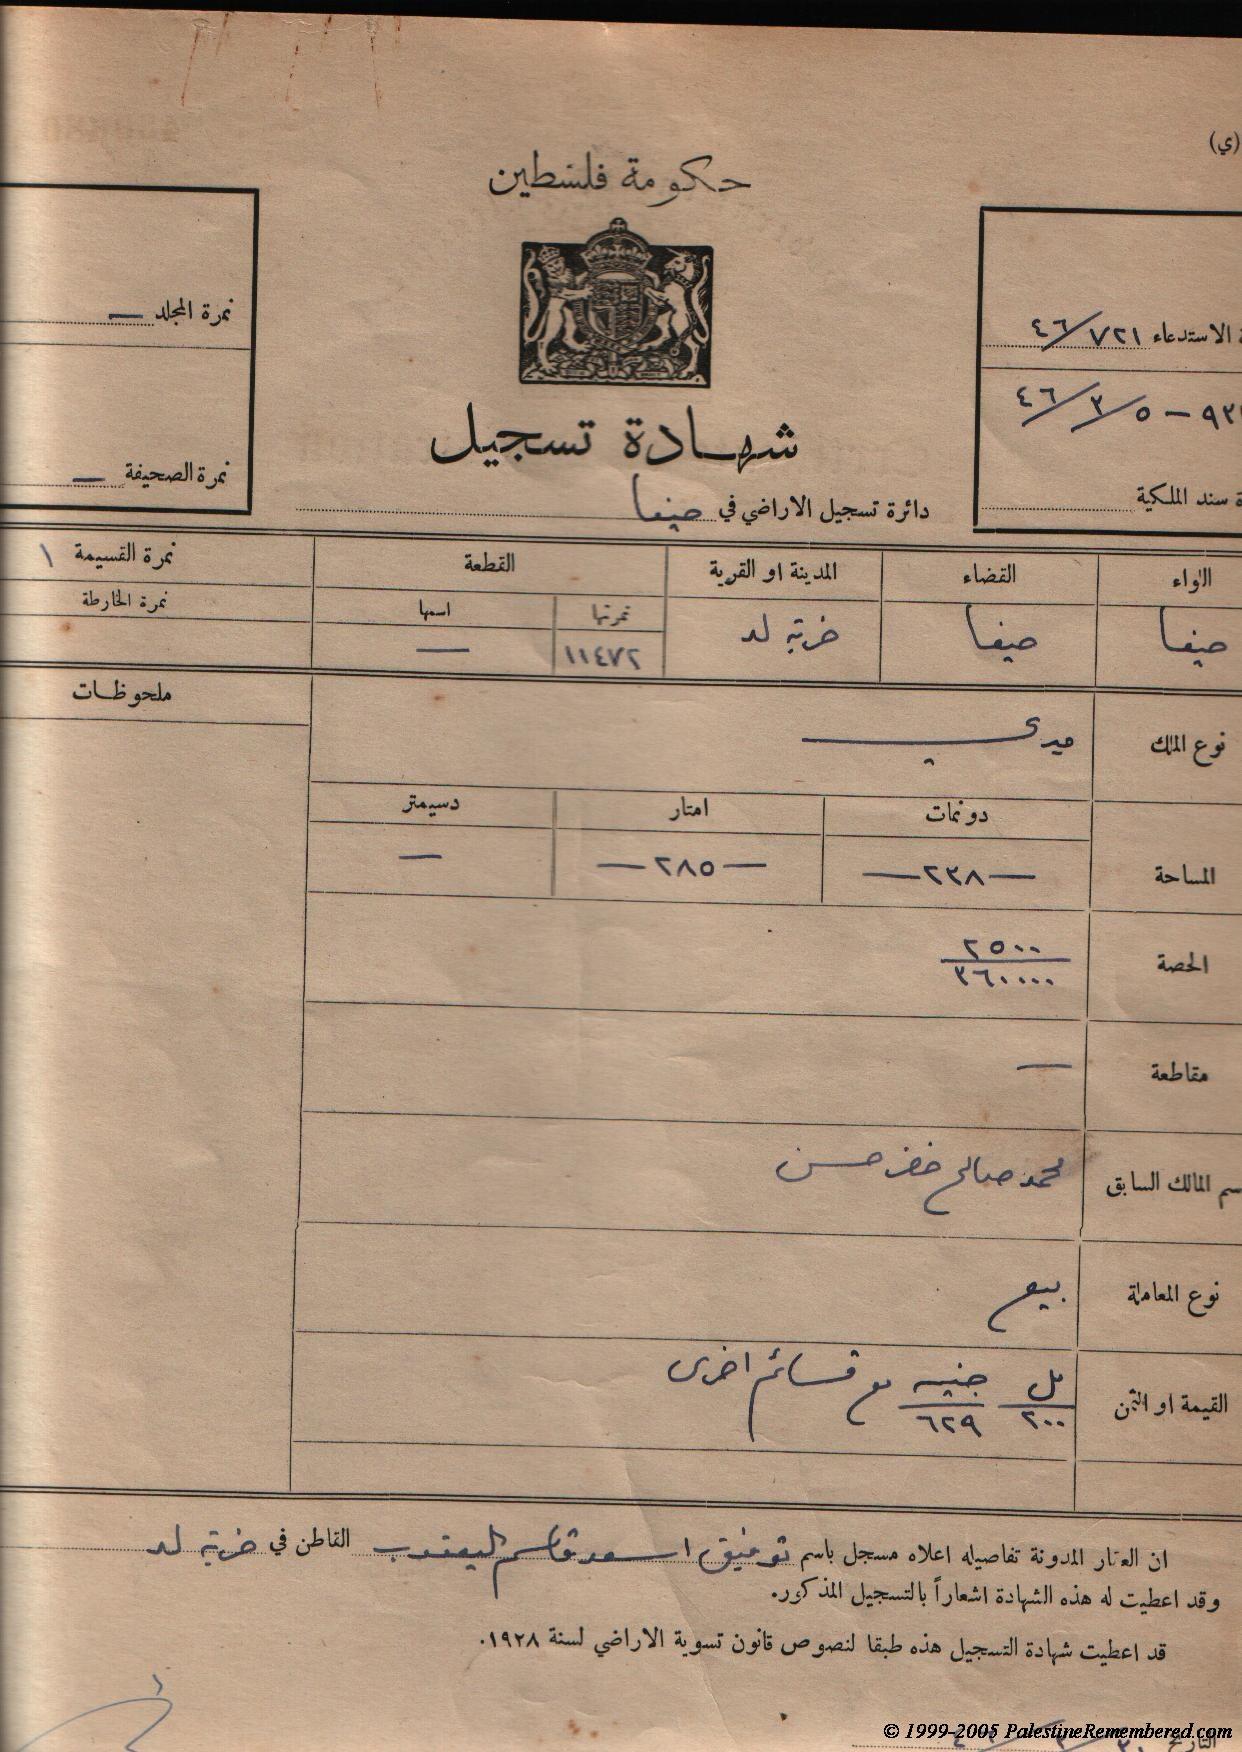 (ي)
حكومة فلسطين
نمرة المجلد —
الاستدعاء ٧٢١/٤٦
٥/٣/٤٦
شهادة تسجيل
نمرة الصحيفة —
سند الملكية
دائرة تسجيل الاراضي في حيفا
اللواء القضاء المدينة او القرية القطعة نمرة القسيمة ١
نمرتها اسمها نمرة الخارطة
حيفا حيفا خربة لد ١١٤٧٢ —
ملحوظات
نوع الملك ميري
دونمات امتار دسيمتر
المساحة — ٢٣٨ — — ٢٨٥ — —
الحصة ٢٥٠٠
٣٦٠٠٠٠
مقاطعة —
اسم المالك السابق محمد صالح خضر حسن
نوع المعاملة بيع
القيمة او الثمن مل جنيه مع قسائم اخرى
٢٠٠ ٦٢٩
ان العقار المدونة تفاصيله اعلاه مسجل باسم توفيق اسعد قاسم اليعقوب القاطن في خربة لد
وقد اعطيت له هذه الشهادة اشعاراً بالتسجيل المذكور.
قد اعطيت شهادة التسجيل هذه طبقا لنصوص قانون تسوية الاراضي لسنة ١٩٢٨.
التاريخ
© 1999-2005 PalestineRemembered.com